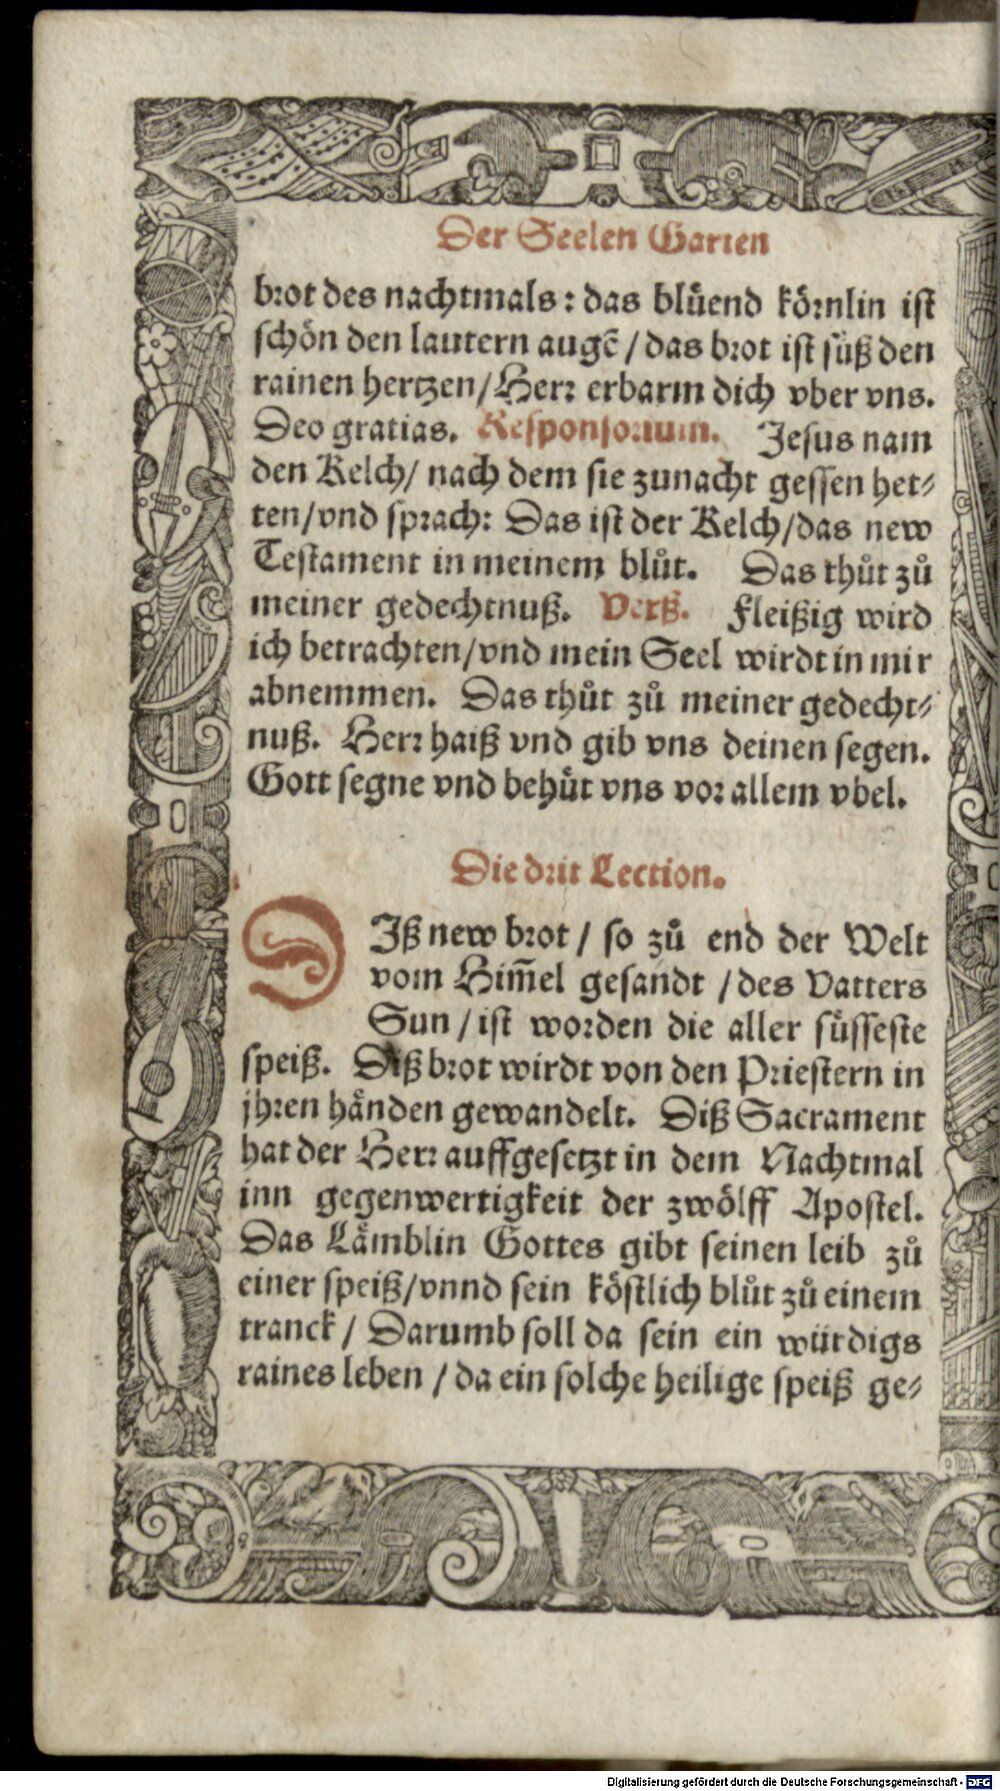 Der Seelen Garten
brot des nachtmals: das blüend körnlin ist
schön den lautern augē / das brot ist süß den
rainen hertzen / Herr erbarm dich vber vns.
Deo gratias. Responsorium. Jesus nam
den Kelch / nach dem sie zunacht gessen het⸗
ten / vnd sprach: Das ist der Kelch / das new
Testament in meinem blůt. Das thůt zů
meiner gedechtnuß. Verß. Fleißig wird
ich betrachten / vnd mein Seel wirdt in mir
abnemmen. Das thůt zů meiner gedecht⸗
nuß. Herr haiß vnd gib vns deinen segen.
Gott segne vnd behüt vns vor allem vbel.
Die drit Lection.
DIß new brot / so zů end der Welt
vom Him̄el gesandt / des Vatters
Sun / ist worden die aller süsseste
speiß. Diß brot wirdt von den Priestern in
jhren händen gewandelt. Diß Sacrament
hat der Herr auffgesetzt in dem Nachtmal
inn gegenwertigkeit der zwölff Apostel.
Das Lämblin Gottes gibt seinen leib zů
einer speiß / vnnd sein köstlich blůt zů einem
tranck / Darumb soll da sein ein würdigs
raines leben / da ein solche heilige speiß ge⸗
Digitalisierung gefördert durch die Deutsche Forschungsgemeinschaft - DFG